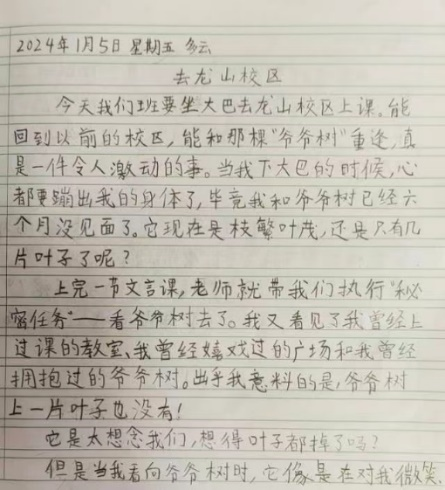 2024年1月5日 星期五 多云
去龙山校区
今天我们班要坐大巴去龙山校区上课。能
回到以前的校区,能和那棵“爷爷树”重逢,真
是一件令人激动的事。当我下大巴的时候,心
都要蹦出我的身体了,毕竟我和爷爷树已经六
个月没见面了。它现在是枝繁叶茂,还是只有几
片叶子了呢?
上完一节文言课,老师就带我们执行“秘
密任务”——看爷爷树去了。我又看见了我曾经上
过课的教室、我曾经嬉戏过的广场和我曾经
拥抱过的爷爷树。出乎我意料的是,爷爷树
上一片叶子也没有!
它是太想念我们,想得叶子都掉了吗?
但是当我看向爷爷树时,它像是在对我微笑,